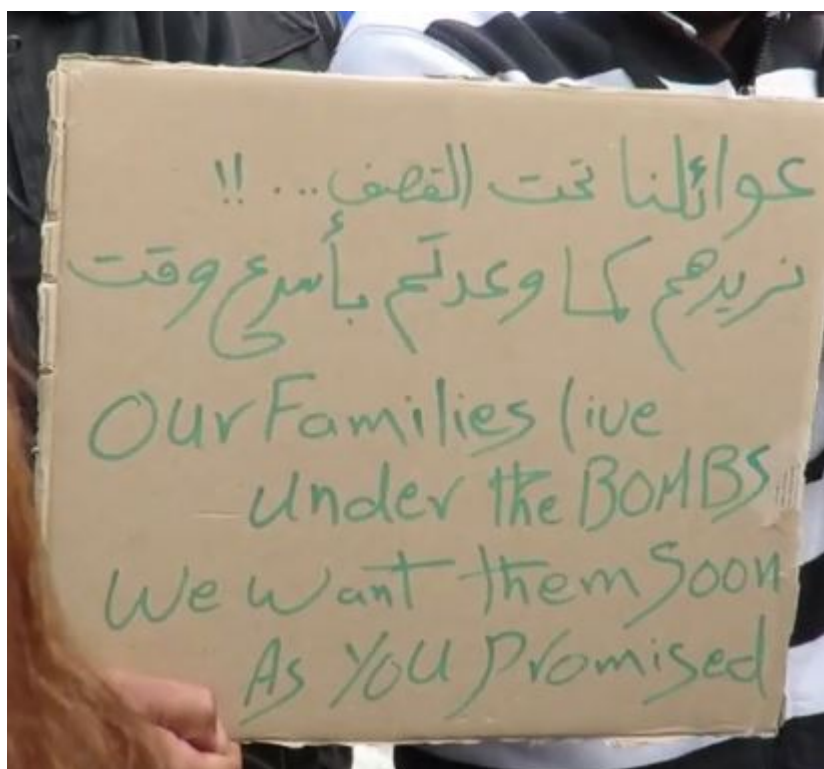 عوائلنا تحت القصف... !!
نريدهم كما وعدتم بأسرع وقت
Our Families live
under the BOMBS
We want them soon
As YOU promised